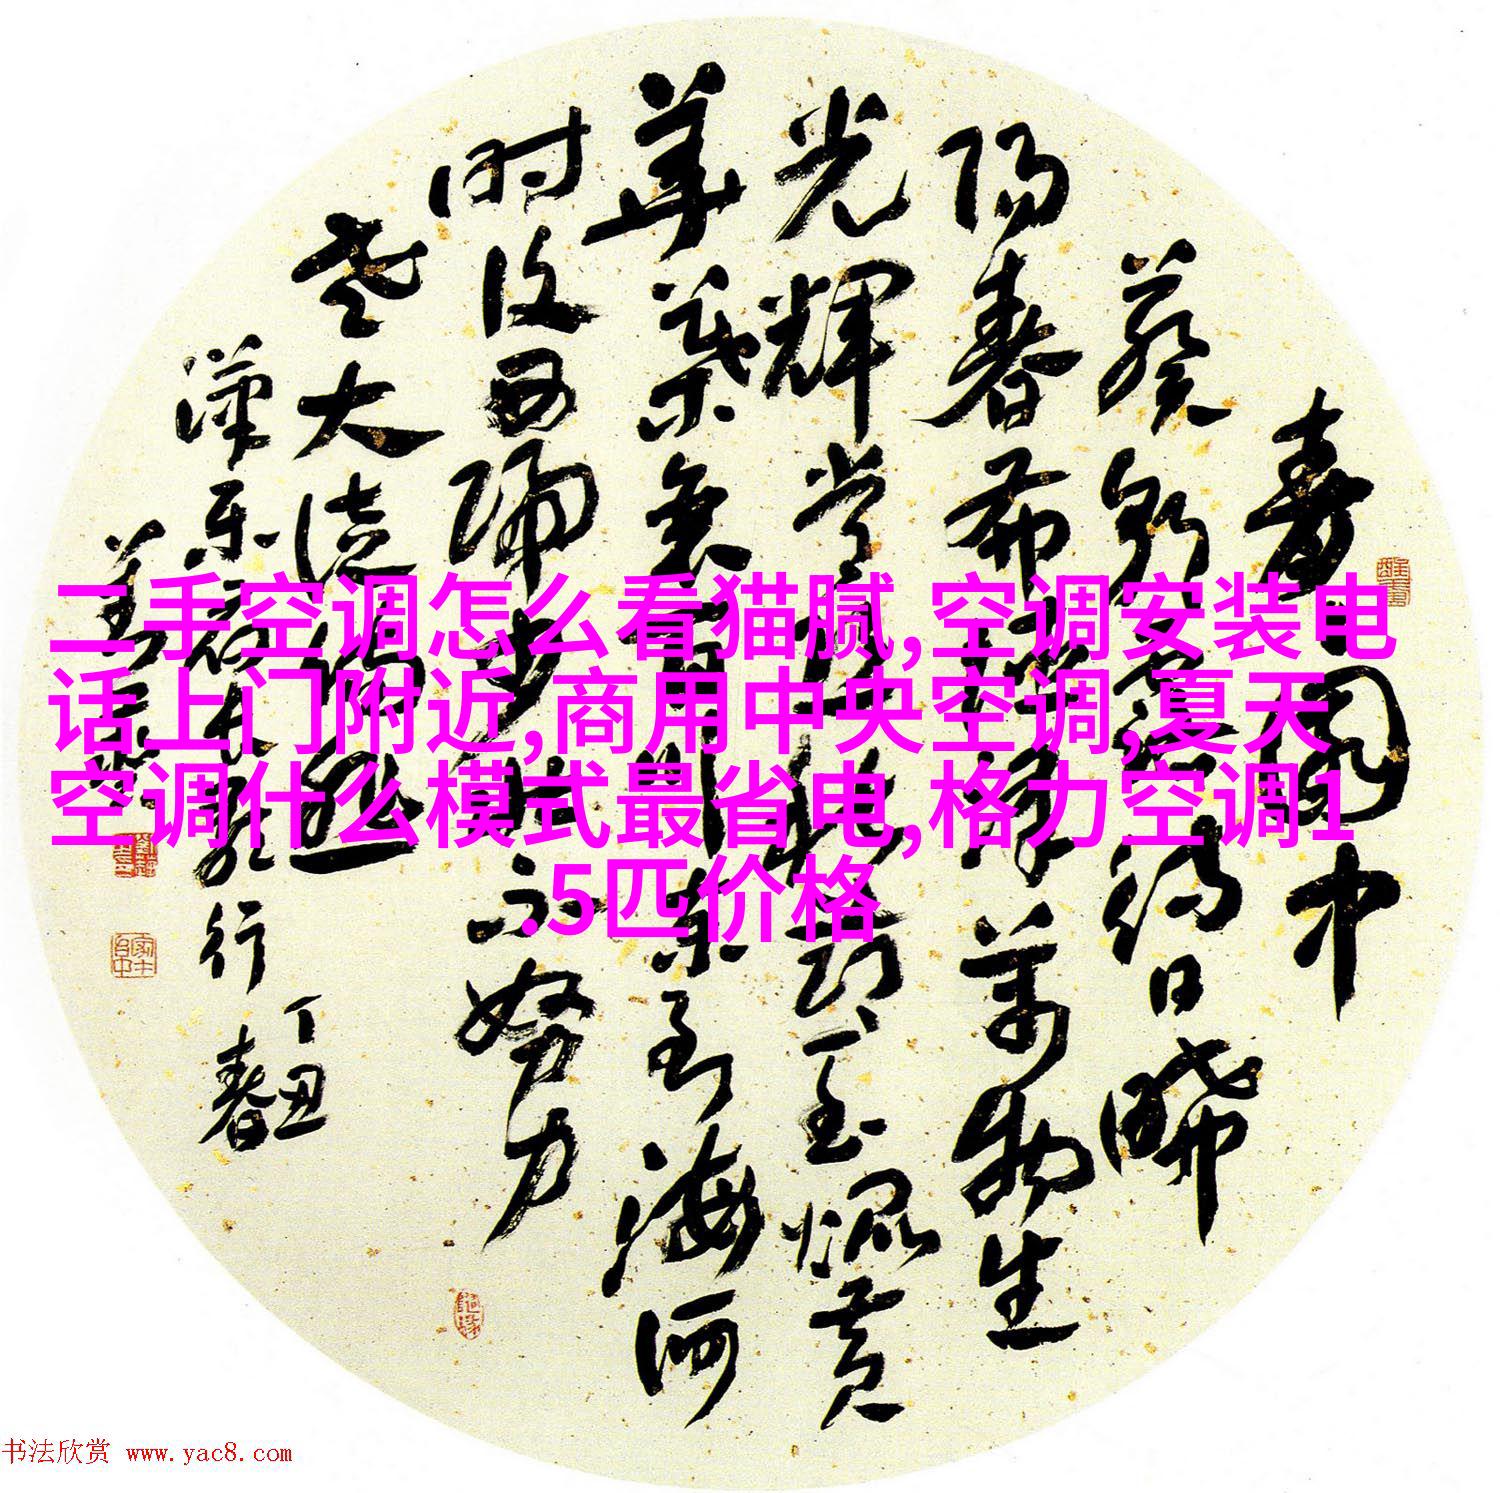 青園中
葵朝露待日晞
陽春布德澤萬物生
光輝常恐秋節至焜黃
華葉衰百川東到海何
时復西歸少壯不努力
老大徒傷悲
漢樂府長歌行
丁丑
春
二手空调怎么看猫腻,空调安装电
话上门附近,商用中央空调,夏天
空调什么模式最省电,格力空调1
.5匹价格
书法欣赏 www.yac8.com